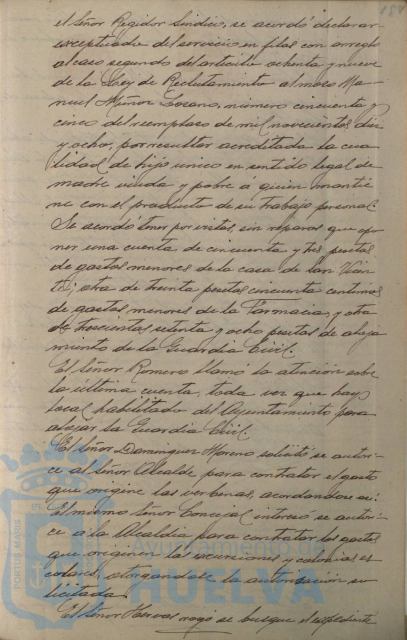 el Señor Regidor Síndico, se acordó declarar
exceptuado del servicio en filas con arreglo
al caso segundo del artículo ochenta y nueve
de la Ley de Reclutamiento al mozo Ma-
nuel Muñoz Lozano, número cincuenta y
cinco del reemplazo de mil novecientos diez
y ocho, por resultar acreditada la cua-
lidad de hijo unico en sentido legal de
madre viuda y pobre á quien mantie-
ne con el producto de su trabajo personal.
Se acordó tener por vistas, sin reparos que opo-
ner una cuenta de cincuenta y tres pesetas
de gastos menores de la casa de San Vicen-
te; otra de treinta pesetas cincuenta centimos
de gastos menores de la Farmacia, y otra
de trescientas setenta y ocho pesetas de aloja-
miento de la Guardia Civil.
El Señor Romero llamó la atención sobre
la última cuenta, toda vez que hay
local habilitado del Ayuntamiento para
alojar la Guardia Civil.
El Señor Dominguez Moreno solicitó se autori-
ce al Señor Alcalde para contratar el gasto
que origine las verbenas, acordandose asi:
El mismo Señor Concejal interesó se autori-
ce a la Alcaldía para contratar los gastos
que originen las excursiones y colonias es-
colares, otorgandole la autorización so-
licitada.
El Señor Hervas rogó se busque el expediente
PORTUS MARIS
Ayuntamiento de
HUELVA